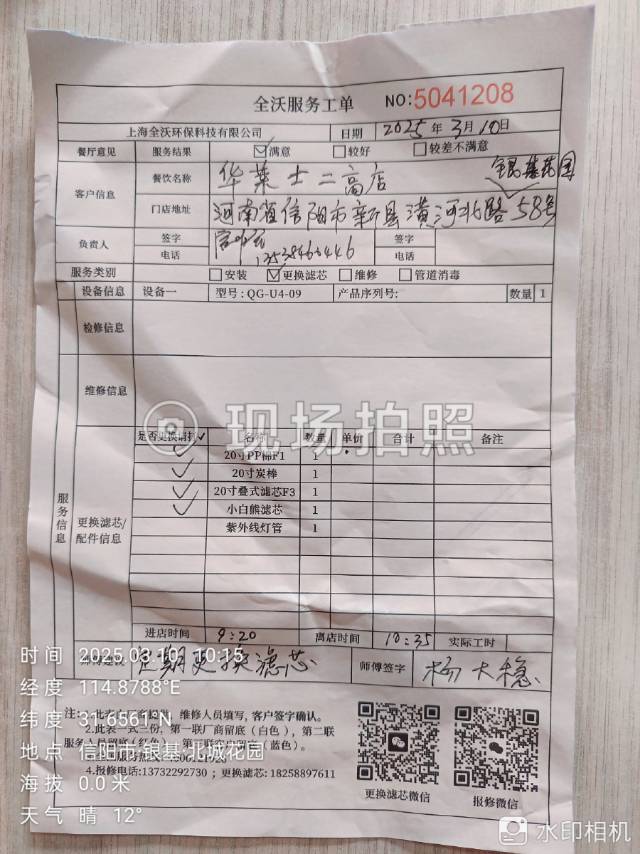 全沃服务工单 NO:5041208
上海全沃环保科技有限公司 日期 2025年3月10日
餐厅意见 服务结果 满意 较好 较差不满意
客户信息 餐饮名称 华莱士二高店
门店地址 河南省信阳市新县潢河北路58号
负责人 签字 签字
电话 电话
服务类别 安装 更换滤芯 维修 管道消毒
设备信息 设备一 型号: QG-U4-09 产品序列号: 数量 1
检修信息
维修信息
现场拍照
名称 数量 单价 合计 备注
20寸PP棉F1 1
20寸炭棒 1
20寸叠式滤芯F3 1
小白熊滤芯 1
紫外线灯管 1
服务信息
更换滤芯/
配件信息
进店时间 9:20 离店时间 10:35 实际工时
定期更换滤芯 师傅签字 杨大稳
维修人员填写, 客户签字确认。
2.此表一式二份, 第一联厂商留底(白色)、第二联
4.报修电话:13732292730 ; 更换滤芯: 18258897611
更换滤芯微信 报修微信
时间 2025.03.10 10:15
经度 114.8788°E
纬度 31.6561°N
地点 信阳市·银基·北城花园
海拔 0.0 米
天气 晴 12°
水印相机